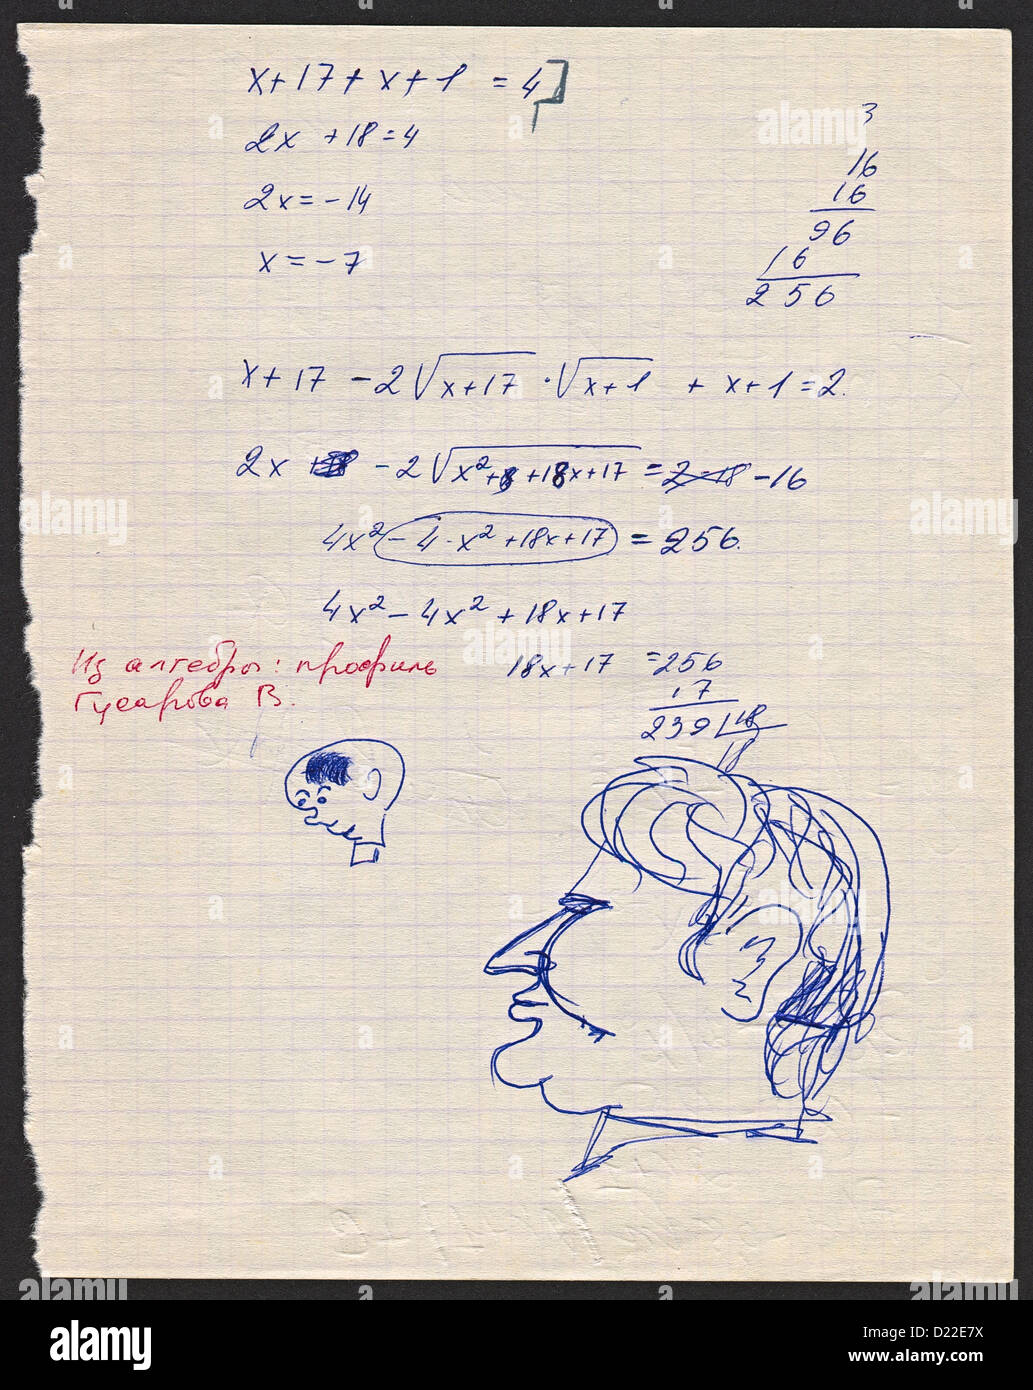 x+17+x+1 = 4
2x +18=4
2x=-14
x=-7
3
16
16
96
16
256
x+17 -2√x+17 ·√x+1 + x+1=2.
2x -2√x²+ +18x+17 = 2-18 -16
4x² -4·x²+18x+17 = 256.
4x²-4x²+18x+17
18x+17 =256
17
239 18
18
Из алгебры: профиль
Гусарова В.
alamy
Image ID: D22E7X
www.alamy.com